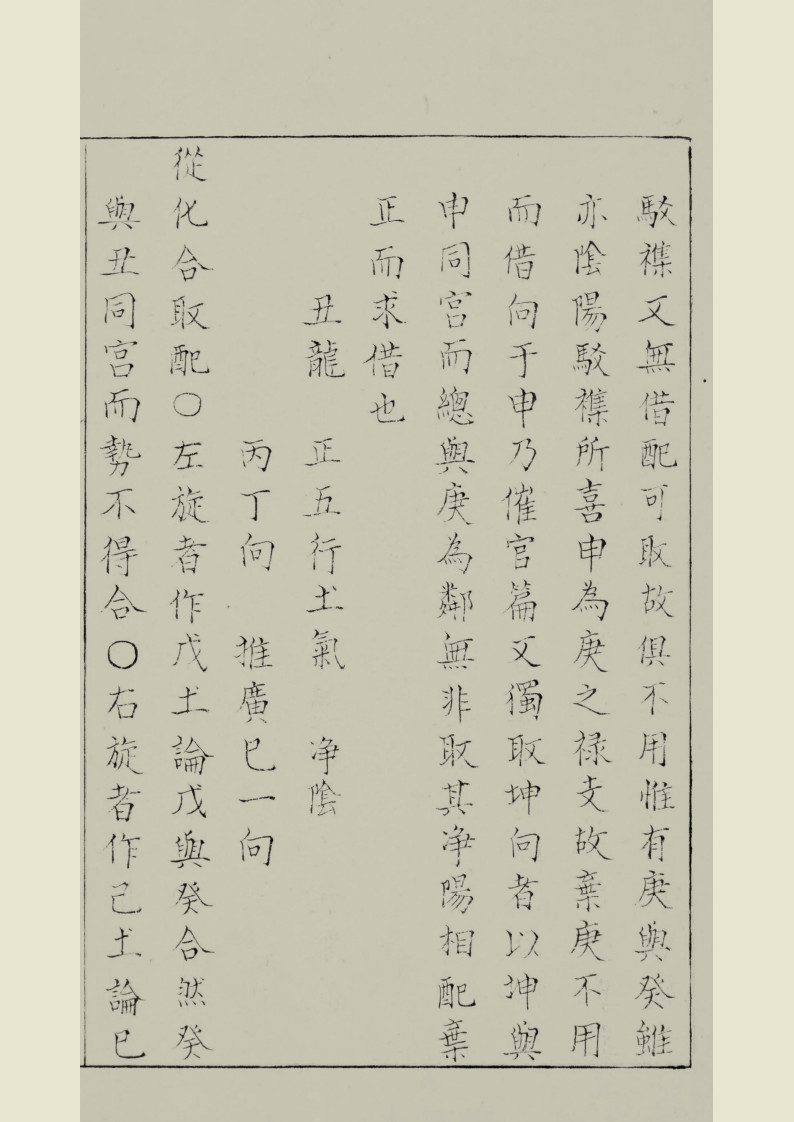 駁襍又無借配可取故俱不用惟有庚與癸雖
亦陰陽駁襍所喜申為庚之祿支故棄庚不用
而借向于申乃催官篇又獨取坤向者以坤與
申同宮而總與庚為鄰無非取其净陽相配棄
正而求借也
丑龍　正五行土氣　净陰
丙丁向　推廣巳一向
從化合取配〇左旋者作戊土論戊與癸合然癸
與丑同宮而勢不得合〇右旋者作己土論巳